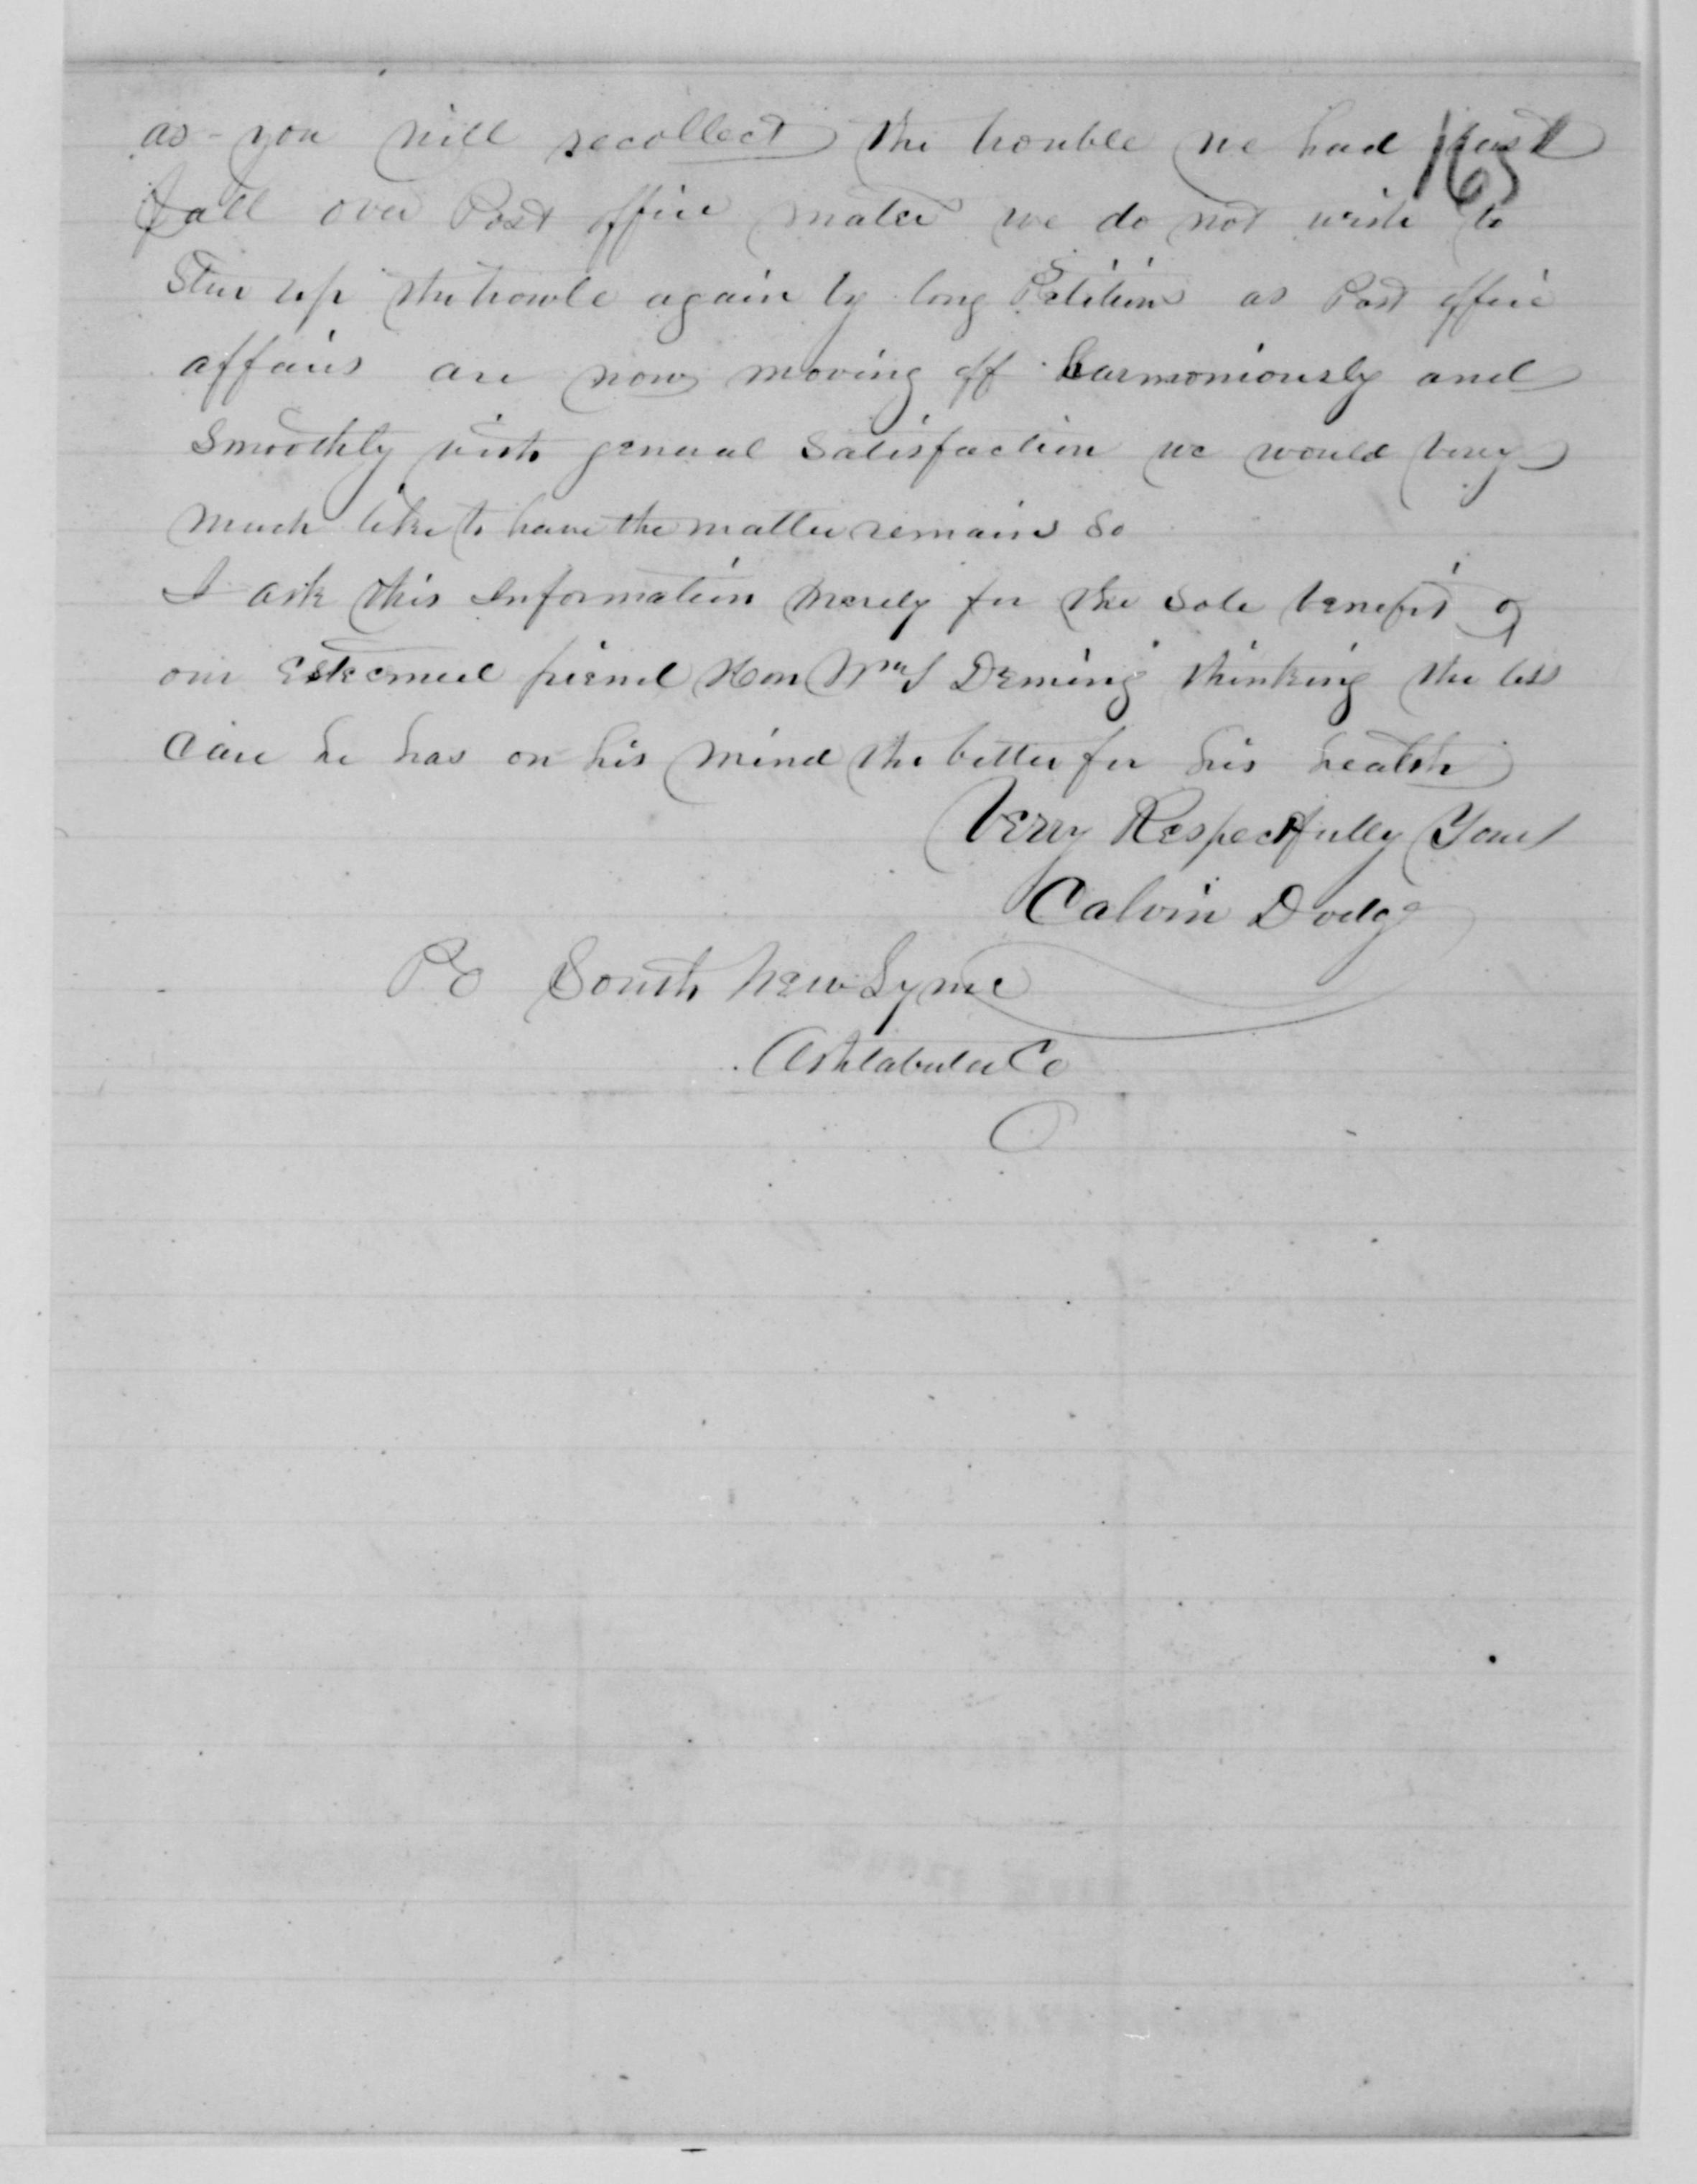 as you will recollect the trouble we had last
163
fall over Post office matter we do not wish to
Stur up the trouble again by long Petitions as Post office
affairs are now moving off harmoniously and
Smoothly with general Satisfaction we would very
much like to have the matter remain So
I ask this Information merely for the Sole benefit of
our Esteemed friend Hon Wm S Deming thinking the less
Care he has on his mind the better for his health
Very Respectfully Yours
Calvin Dodge
PO South New Lyme
Ashtabula Co
O